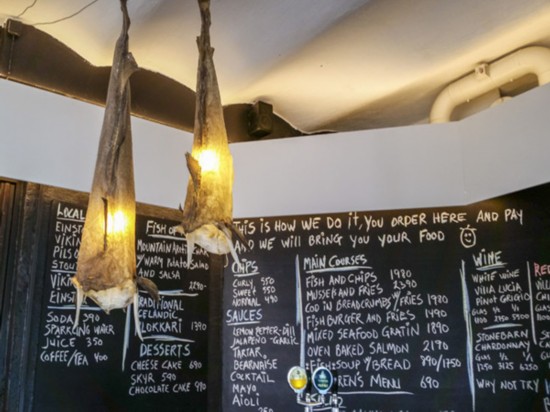 THIS IS HOW WE DO IT, YOU ORDER HERE AND PAY
AND WE WILL BRING YOU YOUR FOOD
LOCAL
EINST
VIKIN
PILS
STOUT
VIKIN
EINST
SODA 390
SPARKLING WATER
JUICE 350
COFFEE/TEA 400
FISH OF
MOUNTAIN
W/WARM POTATO SALAD
AND SALSA
2290
TRADITIONAL
ICELANDIC
PLOKKARI 1390
DESSERTS
CHEESE CAKE 690
SKYR 590
CHOCOLATE CAKE 990
CHIPS
CURLY 550
SWEET 550
NORMAL 490
SAUCES
LEMON PEPPER-DILL
JALAPENO-GARLIC
TARTAR
BEARNAISE
COCKTAIL
MAYO
AIOLI
MAIN COURSES
FISH AND CHIPS 1980
MUSSEL AND FRIES 2390
COD IN BREADCRUMBS W/FRIES 1980
FISH BURGER AND FRIES 1490
MIXED SEAFOOD GRATIN 1890
OVEN BAKED SALMON 2190
FISHSOUP W/BREAD 390/1750
REN'S MENU 690
WINE
WHITE WINE
VILLA LUCIA
PINOT GRIGIO
STONEBARN
CHARDONNAY
WHY NOT TRY
RE